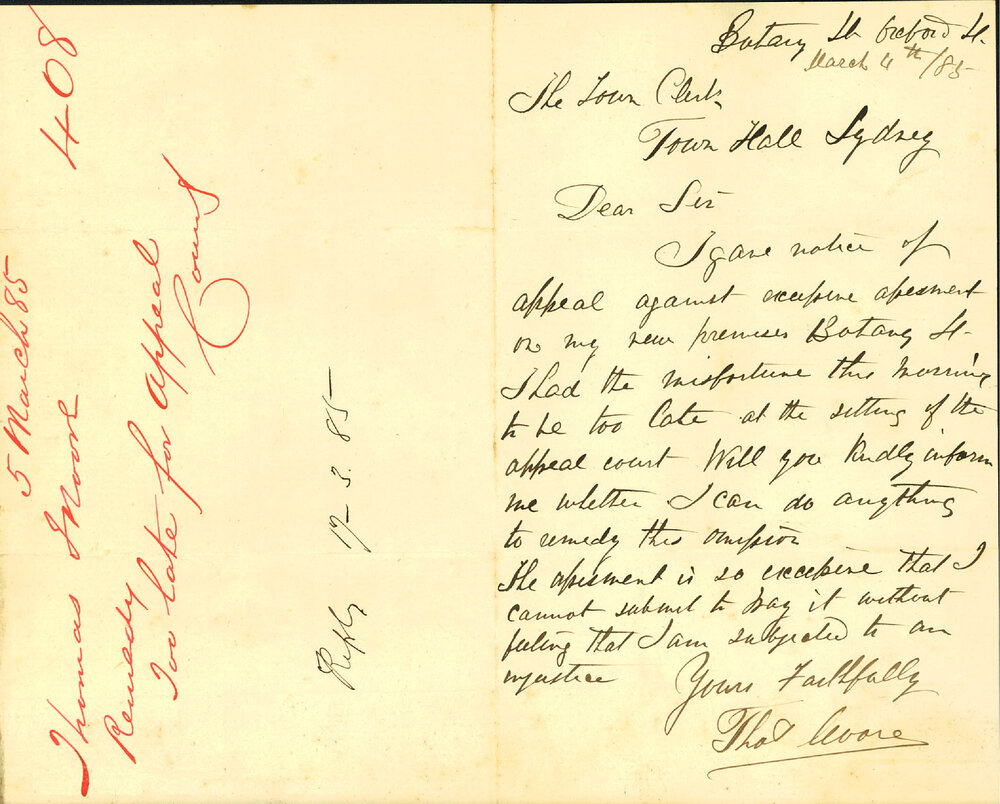 408
5 March 85
Thomas J Moore
Remedy
Too late for Appeal
Court
Reply 17-3.85
Botany St Oxford St.
March 4th/85
The Town Clerk
Town Hall Sydney
Dear Sir
I gave notice of
appeal against excessive assesment
on my new premises Botany St.
I had the misfortune this morning
to be too late at the sitting of the
appeal court Will you kindly inform
me whether I can do anything
to remedy this omission
The assesment is so excessive that I
cannot submit to pay it without
feeling that I am subjected to an
injustice
Yours Faithfully
Thos Moore